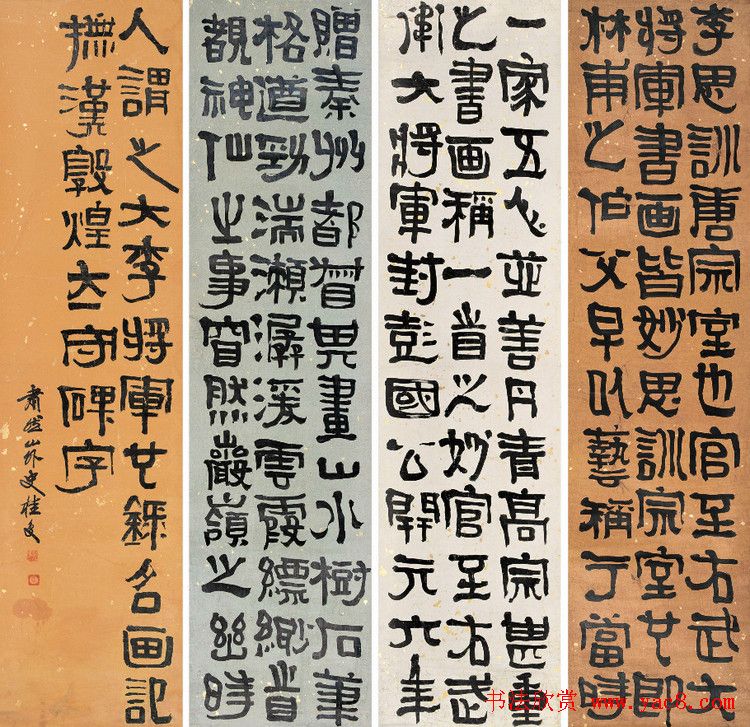 李思訓唐宗室也官至右武大
将軍書画皆妙思訓宗室也即
林甫之伯父早以藝稱于當時
一家五人並善丹青高宗甚重
之書画稱一旹之妙官至右武
衛大将軍封彭國公開元六年
贈秦州都督其畫山水樹石筆
格遒勁湍瀨潺湲雲霞縹緲旹
覩神仙之事窅然巖嶺之幽時
人謂之大李将軍也録名画記
撫漢敦煌太守碑字
肅然山外史桂馥
书法欣赏 www.yac8.com